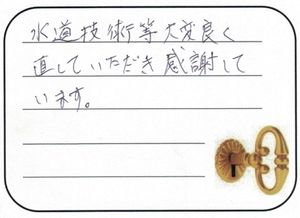 水道技術等大変良く
直していただき感謝して
います。